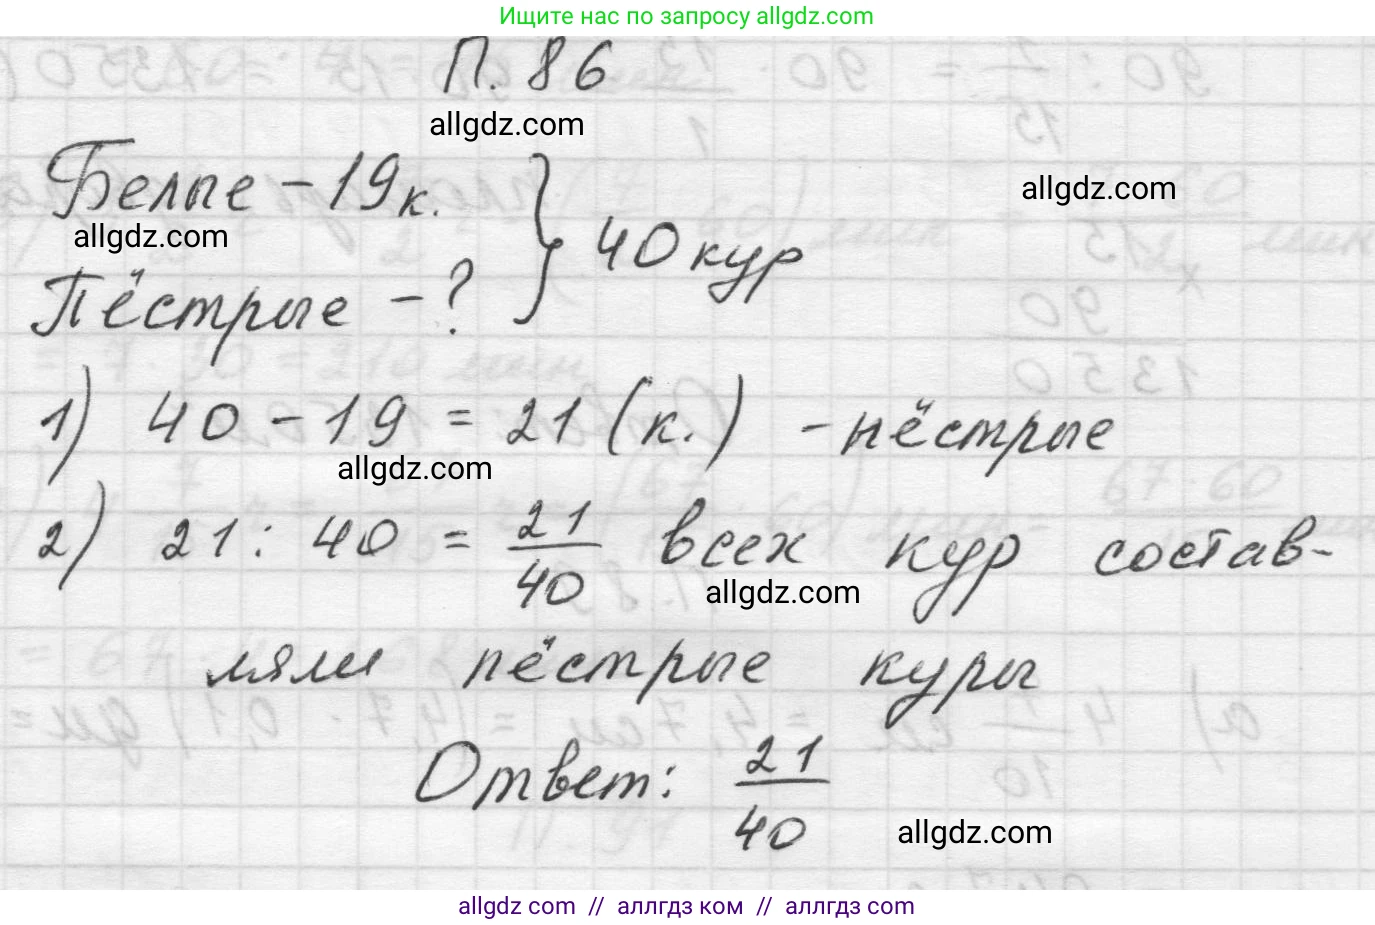 Ищите нас по запросу allgdz.com
П. 86
allgdz.com
Белые – 19 к.
allgdz.com
40 кур
allgdz.com
Пёстрые – ?
1) 40 – 19 = 21 (к.) – пёстрые
allgdz.com
2) 21 : 40 = 21/40 всех кур состав-
allgdz.com
ляли пёстрые куры
Ответ: 21/40
allgdz.com
allgdz com // аллгдз ком // аллгдз com